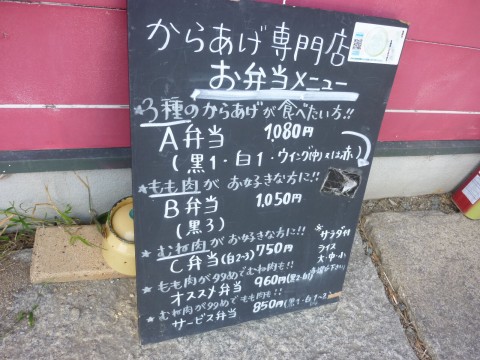 からあげ専門店
お弁当メニュー
★3種のからあげが食べたい方!!
A弁当 1080円
(黒1・白1・ウイング(中)又は赤)
★もも肉がお好きな方に!!
B弁当 1,050円
(黒3)
★むね肉がお好きな方に!!
C弁当(白2~3)750円
※サラダ付
ライス
大・中・小
もも肉が多めでむね肉も!!
オススメ弁当 960円
むね肉が多めでもも肉も!!
サービス弁当 850円